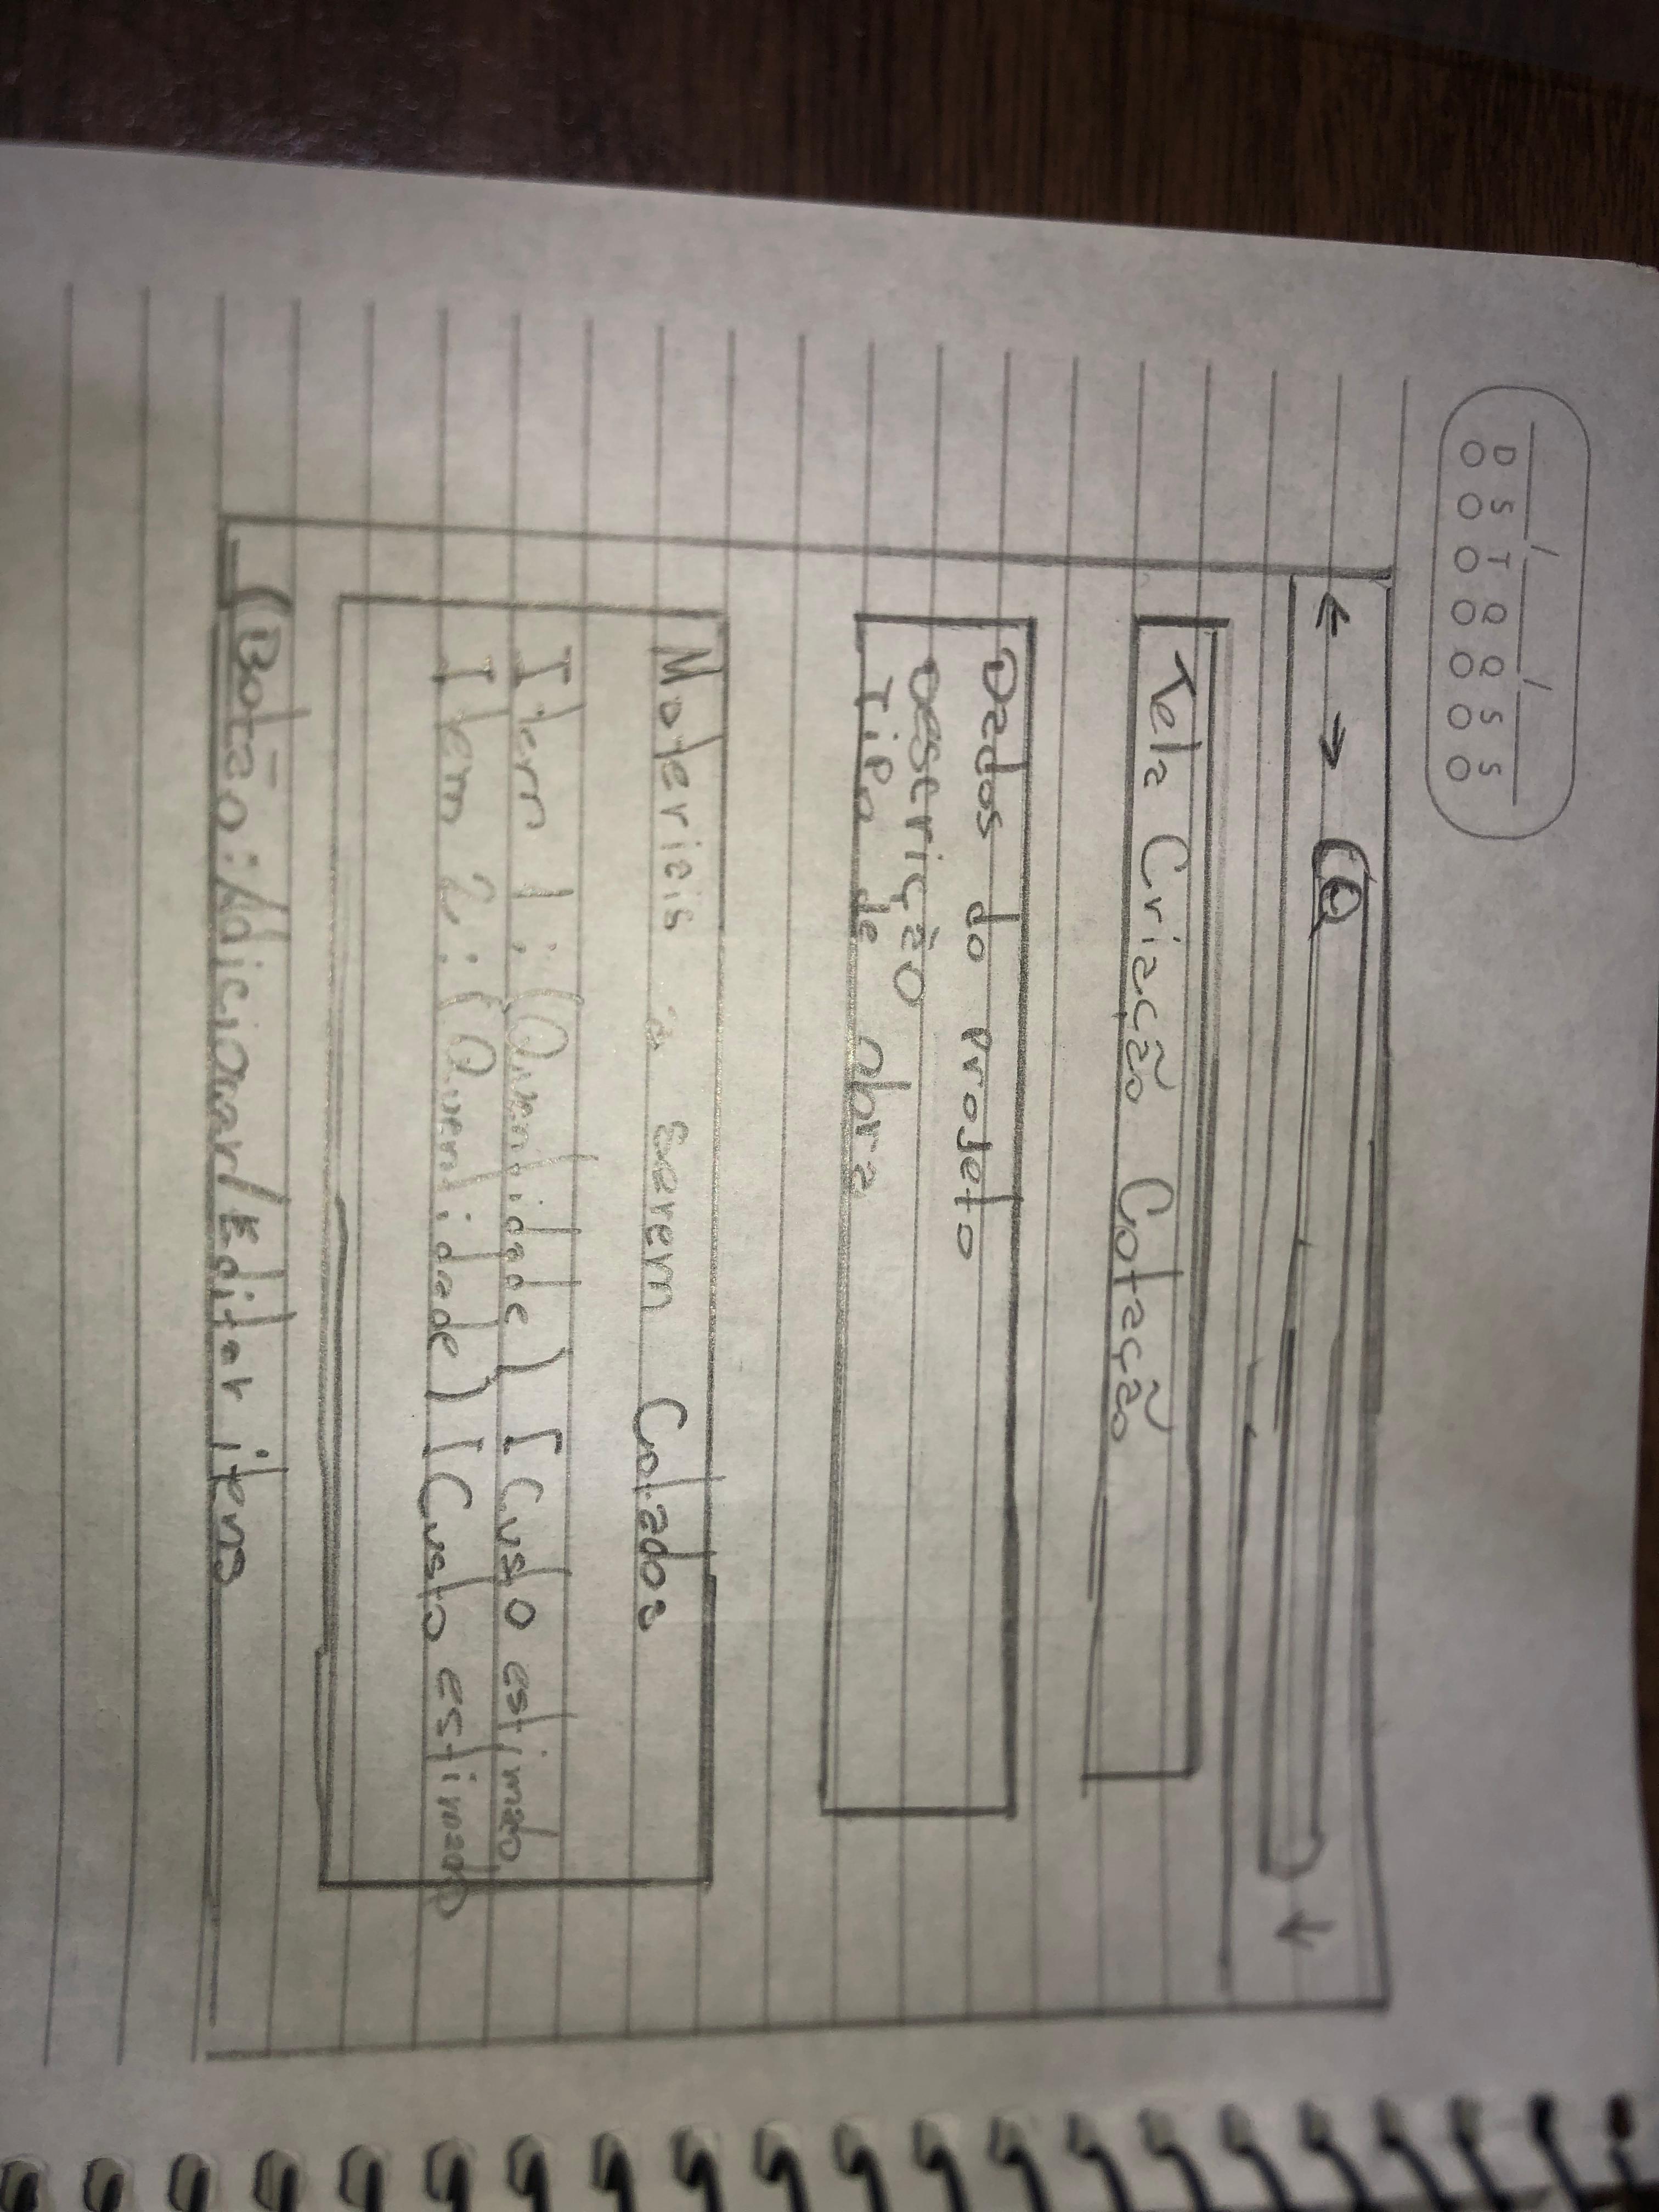 / /
D S T Q Q S S
Tela Criação Cotação
Dados do projeto
Descrição
Tipo de obra
Materiais a serem Cotados
Item 1: (Quantidade) [Custo estimado
Item 2: (Quantidade) [Custo estimado
(Botão: Adicionar/Editar itens